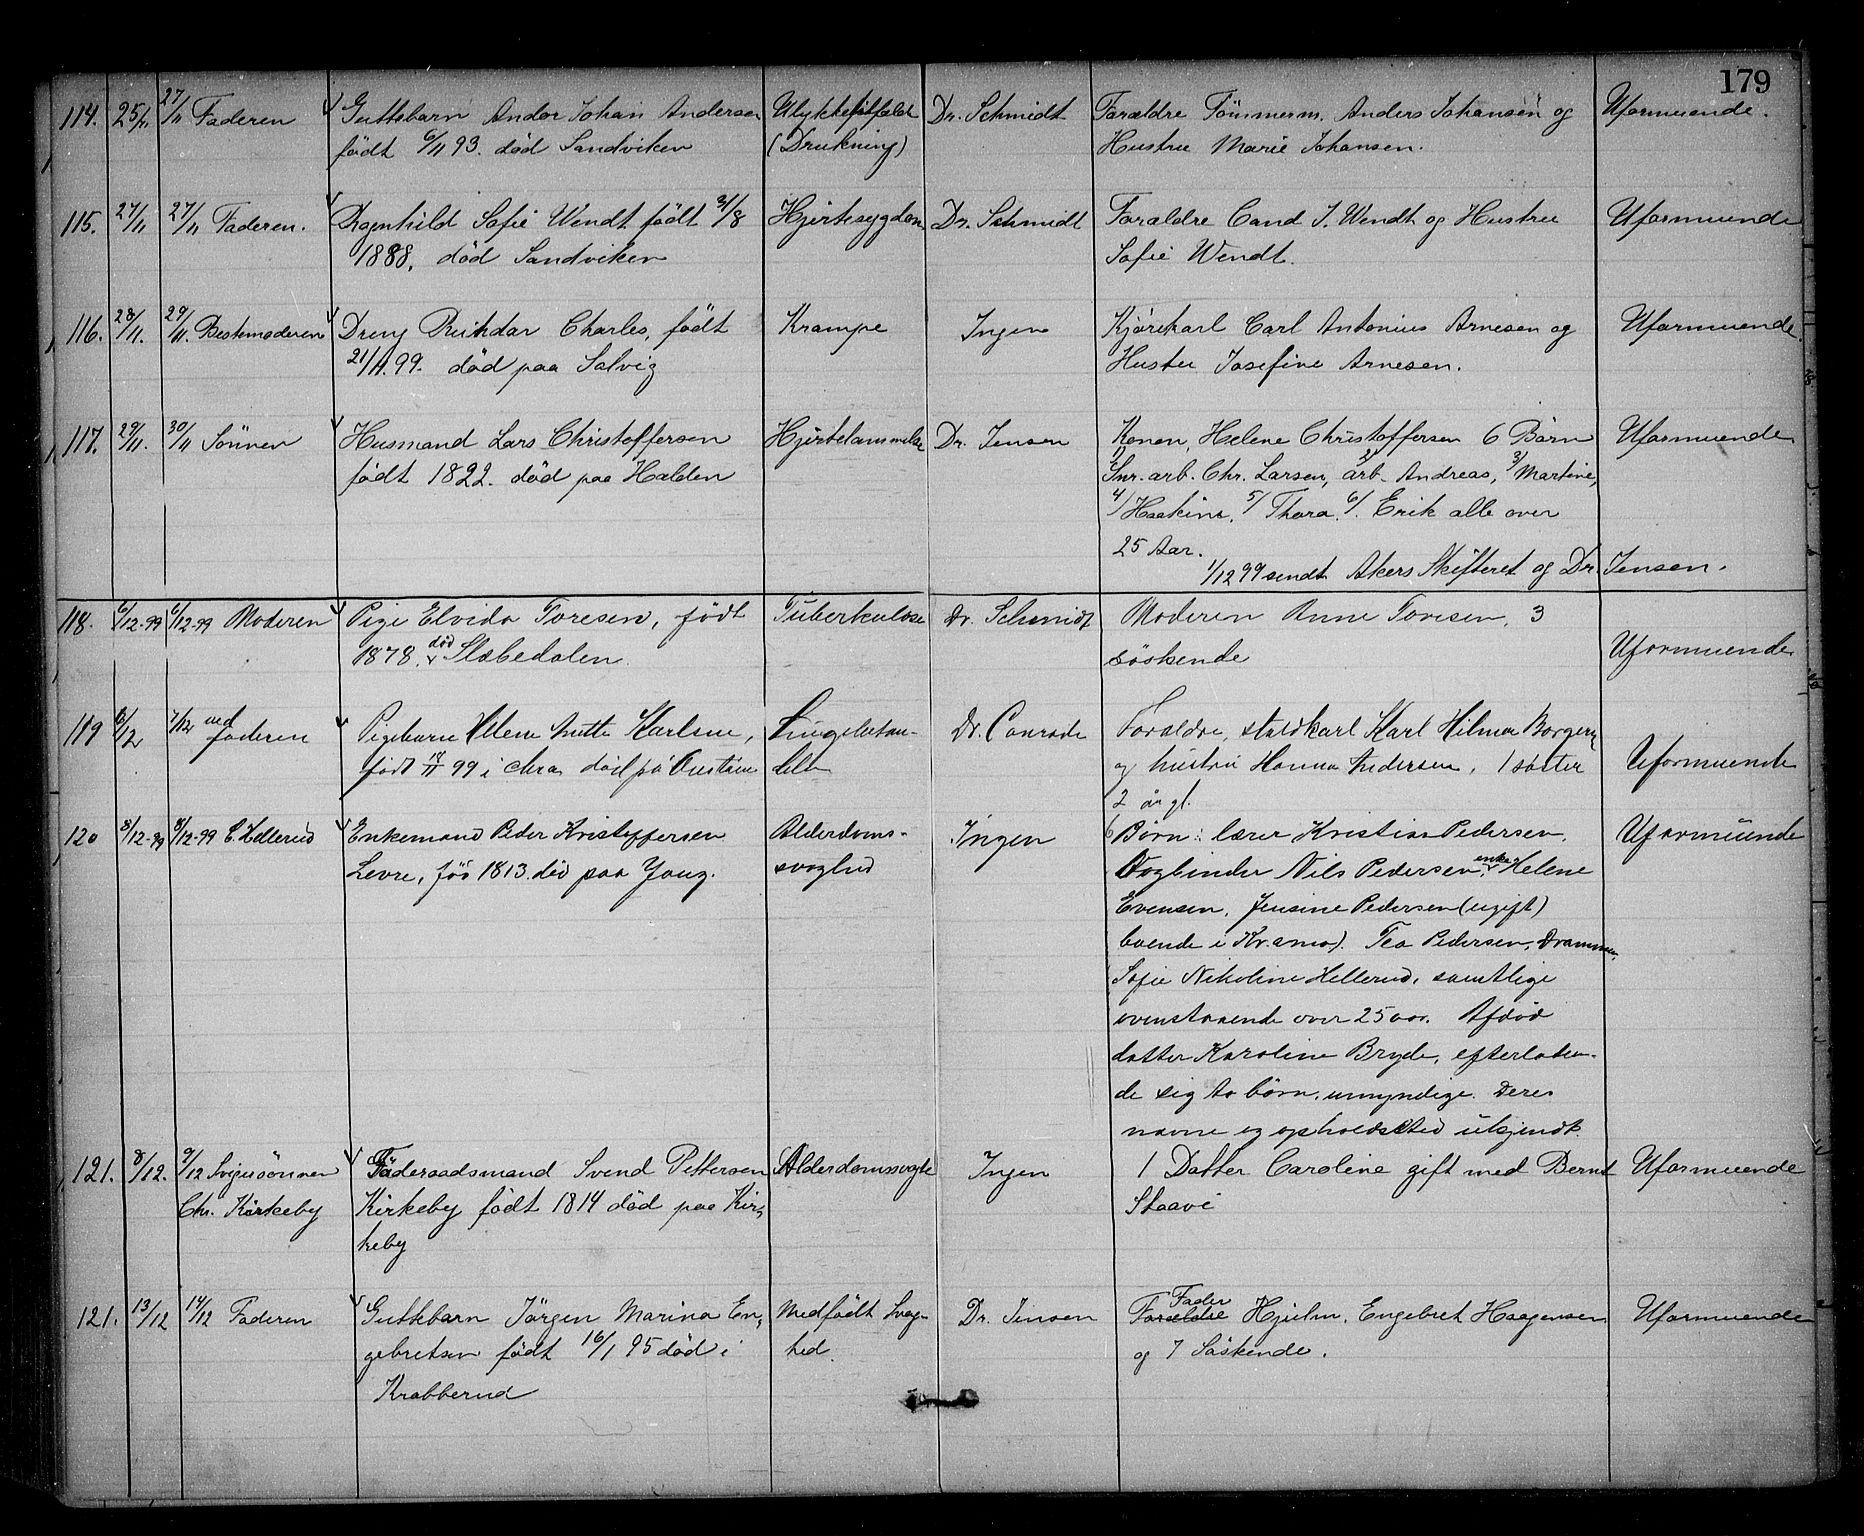 179
114. 25/11. 27/11 Faderen Guttebarn Andor Johan Andersen Ulykkestilfælde Dr. Schmidt Forældre Tömmerm. Anders Johansen og Uformuende.
født 6/11 93. død Sandviken (Drukning) Hustru Marie Johansen.
115. 27/11 27/11 Faderen. Ragnhild Sofie Wendt født 3/8 Hjertesygdom Dr. Schmidt Forældre Cand J. Wendt og Hustru Uformuende
1888, død Sandviken Sofie Wendt.
116. 28/11. 29/11. Bestemoderen Dreng Rikhdar Charles, født Krampe Ingen Kjørekarl Carl Antonius Arnesen og Uformuende.
21/11.99. død paa Solvig Hustru Josefine Arnesen.
117. 29/11. 30/11 Sönnen Husmand Lars Christoffersen Hjertelammelse Dr. Jensen Konen, Helene Christoffersen 6 Börn Uformuende
født 1822. død paa Halden 1/ Snr. arb. Chr. Larsen, 2/ arb. Andreas, 3/ Martine,
4/ Haakine, 5/ Thora, 6/. Erik alle over
25 Aar.
1/12 99 sendt Akers Skifteret og Dr. Jensen.
118. 6/12-99 6/12-99 Moderen Pige Elvida Toresen, født Tuberkulose Dr. Schmidt Moderen Anne Toresen, 3
1878. død Slæbedalen söskende Uformuende
119 6/12 7/12 ved faderen Pigebarn Helene Karlsen, Lungebetæn- Dr. Conradi Forældre, staldkarl Karl Hilmar Borgersen
født 18/11 99 i Chra, død på delse og hustru Hanna Andersen, 1 søster Uformuende
2 år gl.
120 8/12-99 8/12-99 E. Hellerud Enkemand Peder Kristoffersen Alderdoms- Ingen 6 Børn: lærer Kristian Pedersen, Uformuende
Levre, fød 1813. død paa Jong. svaghed Bogbinder Nils Pedersen, enke Helene
Evensen, Jensine Pedersen (ugift)
boende i Kr.ania). Tea Pedersen, Drammen,
Sofie Nikoline Hellerud, samtlige
ovenstaaende over 25 aar. Afdød
datter Karoline Bryde, efterladen-
de sig to børn, umyndige. Deres
navne og opholdssted ukjendt.
121. 8/12. 9/12 Svigersönnen Föderaadsmand Svend Pettersen Alderdomssvaghed Ingen 1 Datter Caroline gift med Bernt Uformuende
Chr. Kirkeby Kirkeby født 1814 död paa Kir- Staavi
keby
121. 13/12 14/12 Faderen Guttebarn Jörgen Marina En- Medfödt Svag- Dr. Jensen Forældre Fader Hjulm. Engebret Haagensen Uformuende
gebretsen født 16/1 95 död i hed. og 7 Söskende.
Krabberud